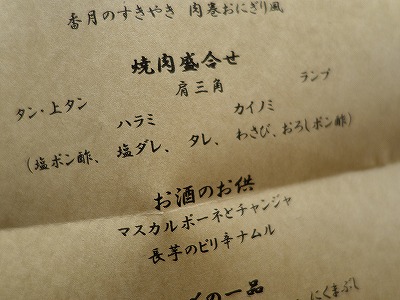 香月のすきやき 肉巻おにぎり風
焼肉盛合せ
肩三角
ランプ
タン・上タン
カイノミ
ハラミ
(塩ポン酢、塩ダレ、タレ、わさび、おろしポン酢)
お酒のお供
マスカルポーネとチャンジャ
長芋のピリ辛ナムル
の一品
にくまぶし